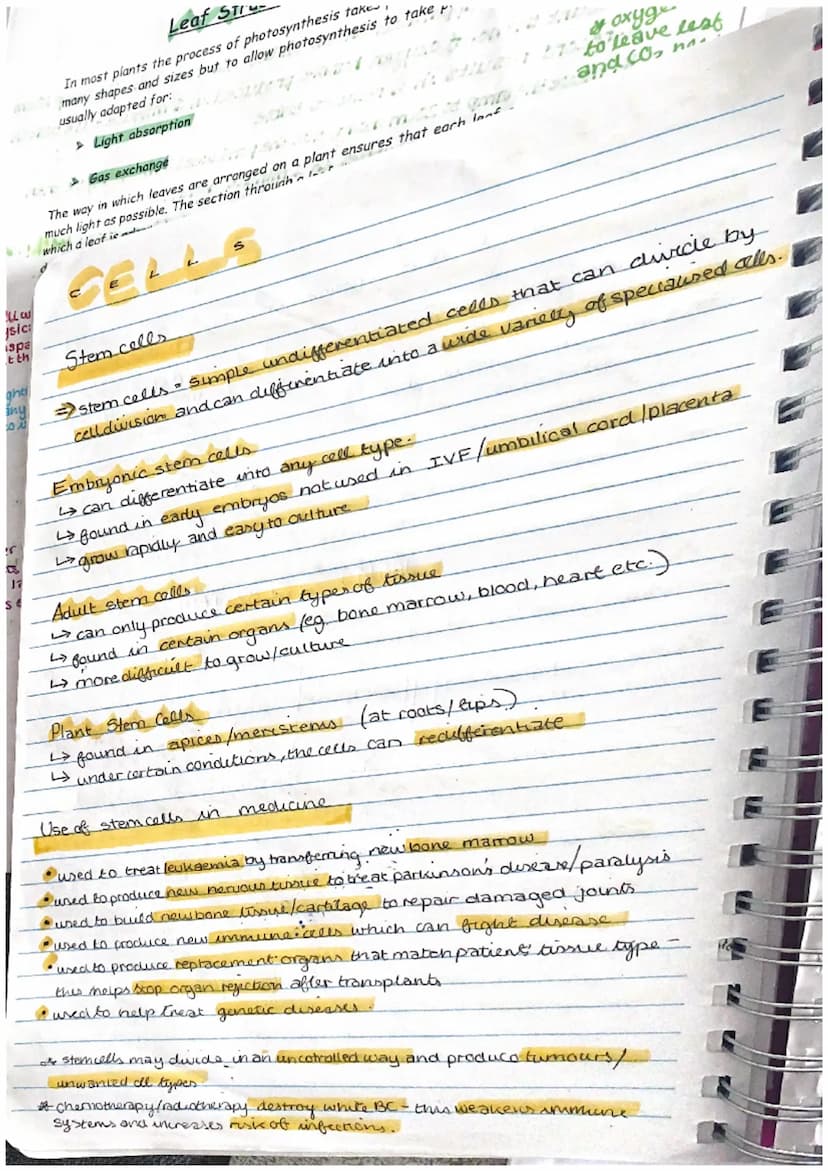 Leaf
In most plants the process of photosynthesis takes
many shapes and sizes but to allow photosynthesis to take
usually adapted for:
➤ Light absorption
➤ Gas exchange
The way in which leaves are arranged on a plant ensures that each leaf
much light as possible. The section through a
which a leaf is
oxyge
to leave leaf
and CO₂
CELLS
Stem cells
⇒ stem cells = simple undifferentiated cells that can divide by
cell division and can differentiate into a wide variety of specialised cells.
Embryonic stem cells
↳ can differentiate into any cell type.
↳ found in early embryos not used in IVF/umbilical cord/placenta
↳ grow rapidly and easy to culture
Adult stem cells
↳ can only produce certain types of tissue
↳ found in certain organs (eg. bone marrow, blood, heart etc.)
↳ more difficult to grow/culture
Plant Stem Cells
↳ found in apices/meristems (at roots/tips)
↳ under certain conditions, the cells can redifferentiate
Use of stem cells in medicine
• used to treat leukaemia by transferring new bone marrow
• used to produce new nervous tissue to treat parkinson's disease/paralysis
• used to build new bone tissue/cartilage to repair damaged joints
• used to produce new immune cells which can fight disease
• used to produce replacement organs that match patient's tissue type -
this helps stop organ rejection after transplants
• used to help treat genetic diseases.
* stem cells may divide in an uncotrolled way and produce tumours/
unwanted cell types
* chemotherapy/radiotherapy destroy white BC - this weakens immune
systems and increases risk of infections.